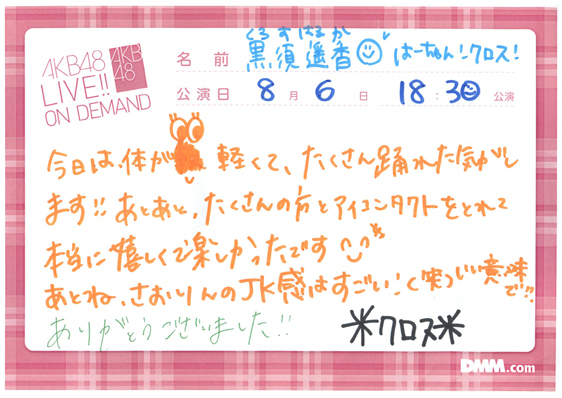 AKB48
LIVE!!
ON DEMAND
AKB
48
くろすはるか
名前 黒須遥香 はーちゃん!クロス!
公演日 8月6日 18:30公演
今日は、体が 軽くて、たくさん踊れた気がし
ます!! あとあと、たくさんの方とアイコンタクトをとれて
本当に嬉しくて楽しかったです
あとね、さおりんのJK感はすごい:く笑っいい意味
で!!
ありがとうございました!!
米クロス米
DMM.com